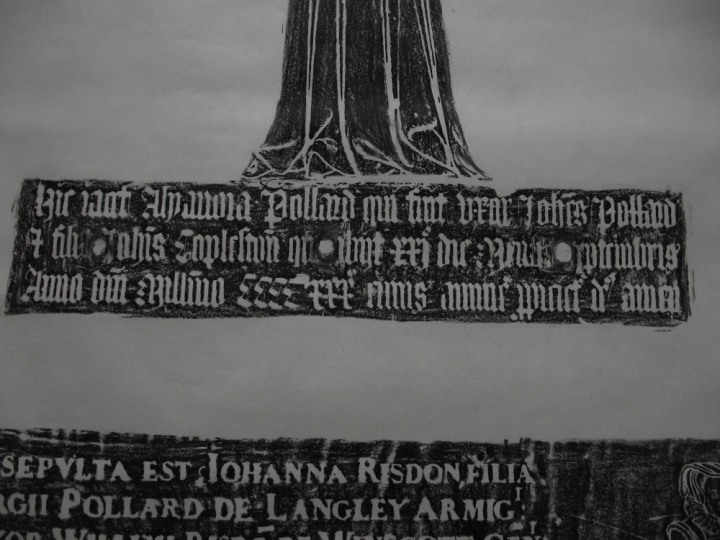 Hic iacet Alyanora Pollard qui fuit uxor Johēs Pollard
& filia Johīs Coplestoun qu obiit xxiº die Mensis Septembris
Anno dnī Millīmo CCCCºxxxº cuius animē ppiciet ds amen
SEPVLTA EST IOHANNA RISDON, FILIA
RGII POLLARD DE LANGLEY ARMIG